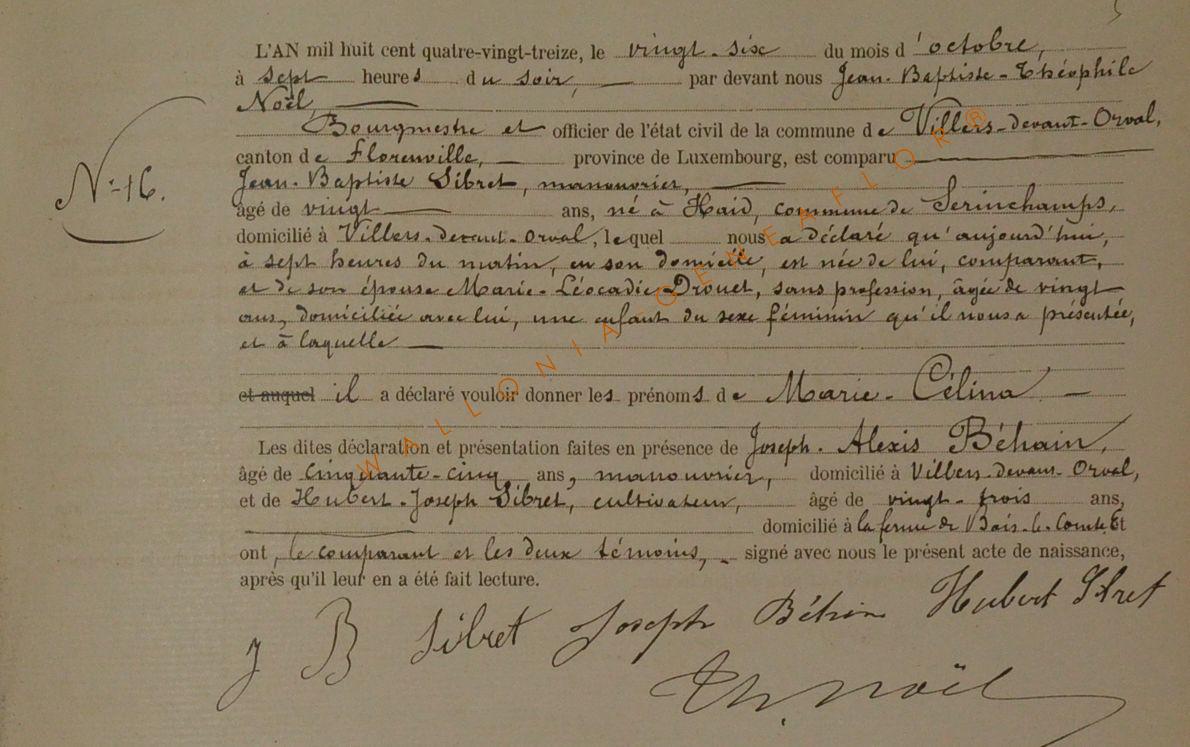 L'AN mil huit cent quatre-vingt-treize, le vingt-six du mois d'octobre,
à sept heures du soir, par devant nous Jean-Baptiste-Théophile
Noël,
Bourgmestre et officier de l'état civil de la commune de Villers-devant-Orval,
canton de Florenville, province de Luxembourg, est comparu
Jean-Baptiste Sibret, manouvrier,
N°-16.
âgé de vingt ans, né à Haid, commune de Serinchamps,
domicilié à Villers-devant-Orval, lequel nous a déclaré qu'aujourd'hui,
à sept heures du matin, en son domicile, est née de lui, comparant,
et de son épouse Marie-Léocadie Drouet, sans profession, âgée de vingt
ans, domiciliée avec lui, une enfant du sexe féminin qu'il nous a présentée,
et à laquelle
et auquel il a déclaré vouloir donner les prénoms de Marie-Célina
Les dites déclaration et présentation faites en présence de Joseph-Alexis Béhain,
âgé de cinquante-cinq ans, manouvrier, domicilié à Villers-devant-Orval,
et de Hubert-Joseph Sibret, cultivateur, âgé de vingt-trois ans,
domicilié à la ferme de Bois-le-Comte. Et
ont, le comparant et les deux témoins, signé avec nous le présent acte de naissance,
après qu'il leur en a été fait lecture.
J B Sibret Joseph Béhin Hubert Sibret
Th. Noël
WALLONIA-GENEAFLOR®